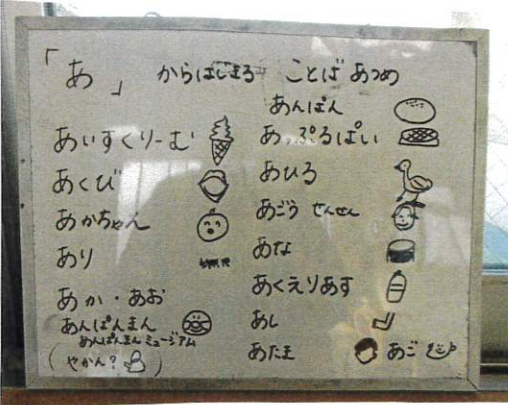 「あ」からはじまる ことば あつめ
あいすくりーむ
あくび
あかちゃん
あり
あか・あお
あんぱんまん
あんぱんまんミュージアム
(やかん?)
あんぱん
あっぷるぱい
あひる
あごう せんせん
あな
あくえりあす
あし
あたま
あご